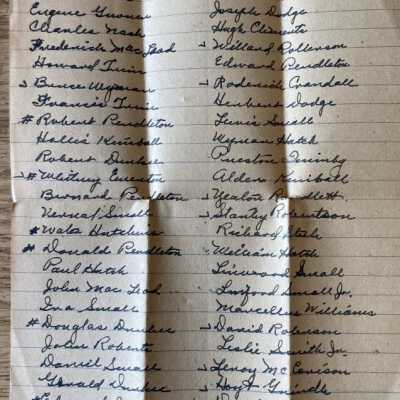 Eugene Grover
Charles Nash
Frederick Mac Lead
Howard Irvin
Bruce Wyman
Francis Irvin
# Robert Pendleton
Hollis Kimball
Robert Dunbar
# Whitney
Bernard Pendleton
Verna Small
# Hutchins
# Donald Pendleton
Paul Hatch
John Mac Lead
Ina Small
# Douglas Dunbar
John Roberts
Daniel Small
Gerald Dunbar
Joseph Dodge
Hugh Clements
Willard Robinson
Edward Pendleton
Roderick Crandall
Herbert Dodge
Lewis Small
Wyman Hatch
Preston
Alden Kimball
Stanley Robertson
Richard
William Hatch
Linwood Small
Small Jr.
Marcellus Williams
David Robinson
Leslie Smith Jr.
Leroy
Hoyt Grindle